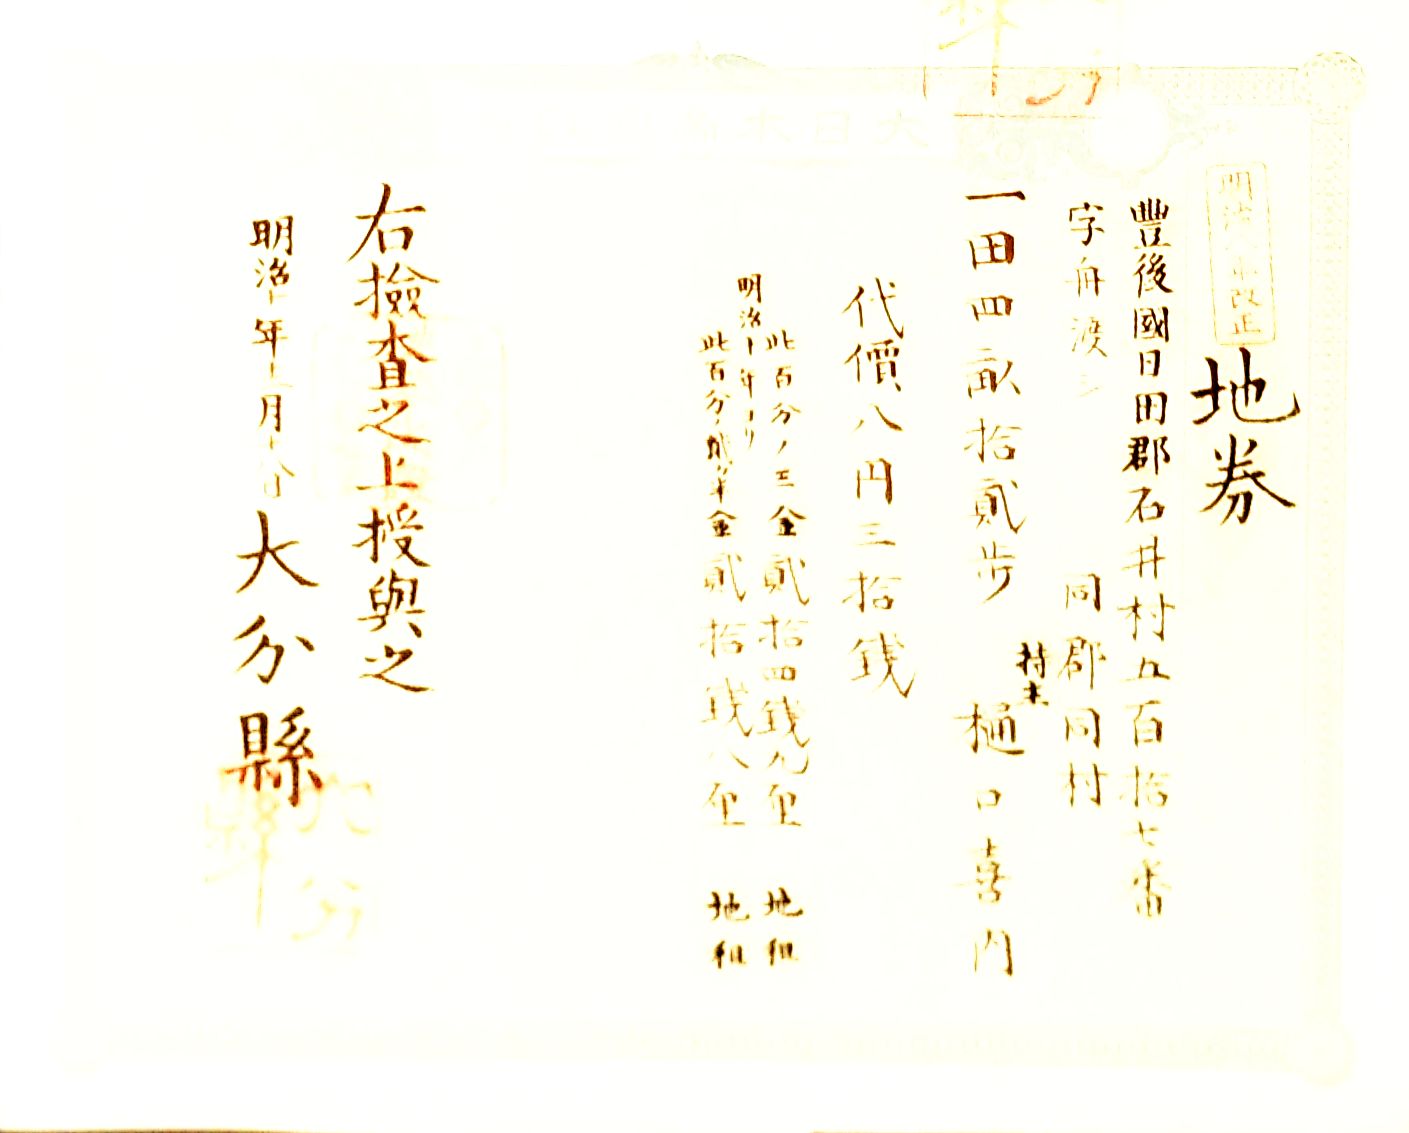 大日本帝國
明治 年改正
地券
豐後國日田郡石井村五百拾七番
字舟渡シ
同郡同村
一田四畝拾貳歩
持主
樋口喜内
代價八円三拾錢
此百分ノ三金貳拾四錢九厘 地租
明治十年ヨリ
此百分ノ貳ヶ半金貳拾錢八厘 地租
右檢査之上授與之
明治十年十二月十 大分縣